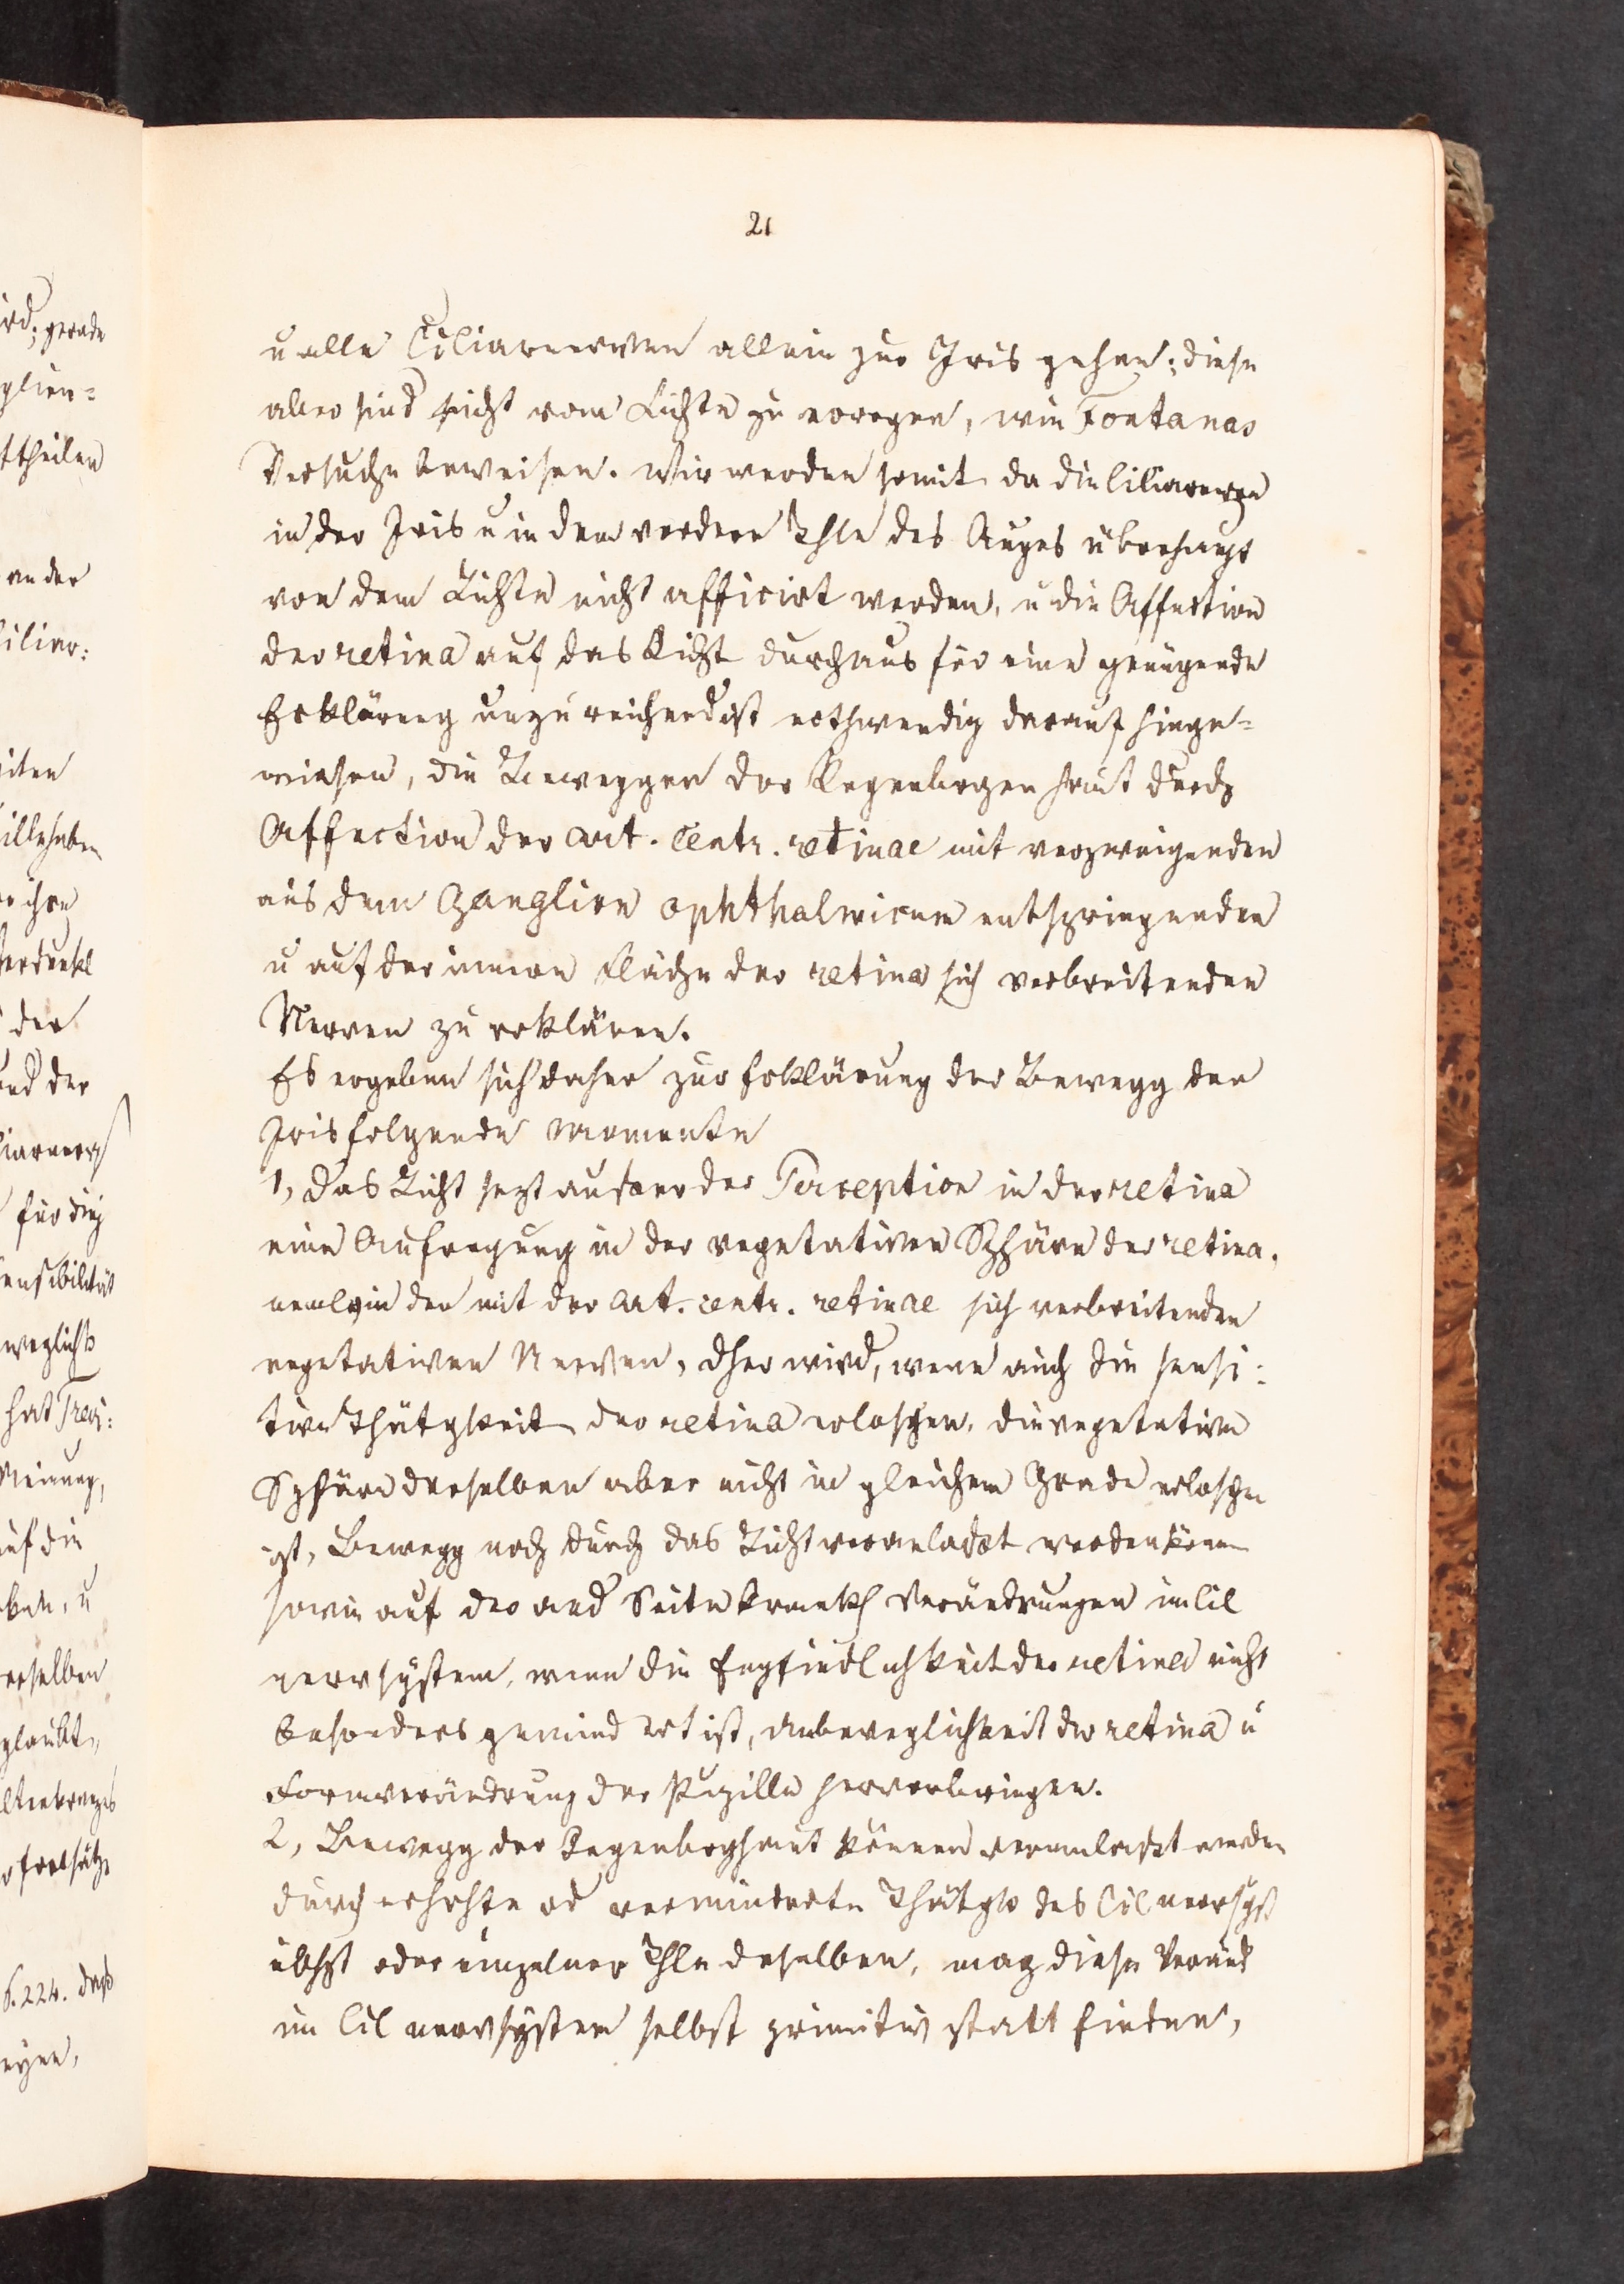 21
u alle Ciliarnerven allein zur Iris gehen; diese
aber sind nicht vom Lichte zu erregen, wie Fontanas
Versuche beweisen. Wir werden somit da die Ciliarnerven
in der Iris u in dem vordern Thle des Auges überhaupt
von dem Lichte nicht afficirt werden, u die Affection
der retina auf das Licht durchaus für eine genügende
Erklärung unzureichend ist nothwendig darauf hinge=
wiesen, die Beweggen der Regenbogenhaut durch
Affection der art. centr. retinae mit verzweigenden
aus dem Ganglion ophthalmicum entspringenden
u auf der innern Fläche der retina sich verbreitenden
Nerven zu erklären.
Es ergeben sich daher zur Erklärung der Bewegg der
Iris folgende Momente
1, Das Licht sezt ausser der Perception in der retina
eine Aufregung in der vegetativen Sphäre der retina,
neml in den mit der art. centr. retinae sich verbreitenden
vegetativen Nerven, dher wird, wenn auch die sensi:
tive Thätgkeit der retina erloschen, die vegetative
Sphäre derselben aber nicht in gleichem Grade erloschen
ist, Bewegg noch durch das Licht veranlasst werden können
sowie auf der and Seite krankh Verändrungen im Cil
nervsystem, wenn die Empfindlichkeit der retina nicht
besonders gemindert ist, Unbeweglichkeit der retina u
Formverändrung der Pupille hervorbringen.
2, Bewegg der Regenboghaut können veranlasst werden
durch erhohte od verminderte Thätgk des Cilnervsyst
übhpt oder einzelner Thle deselben, mag diese Veränd
im Cil nervsystem selbst primitiv statt finden,